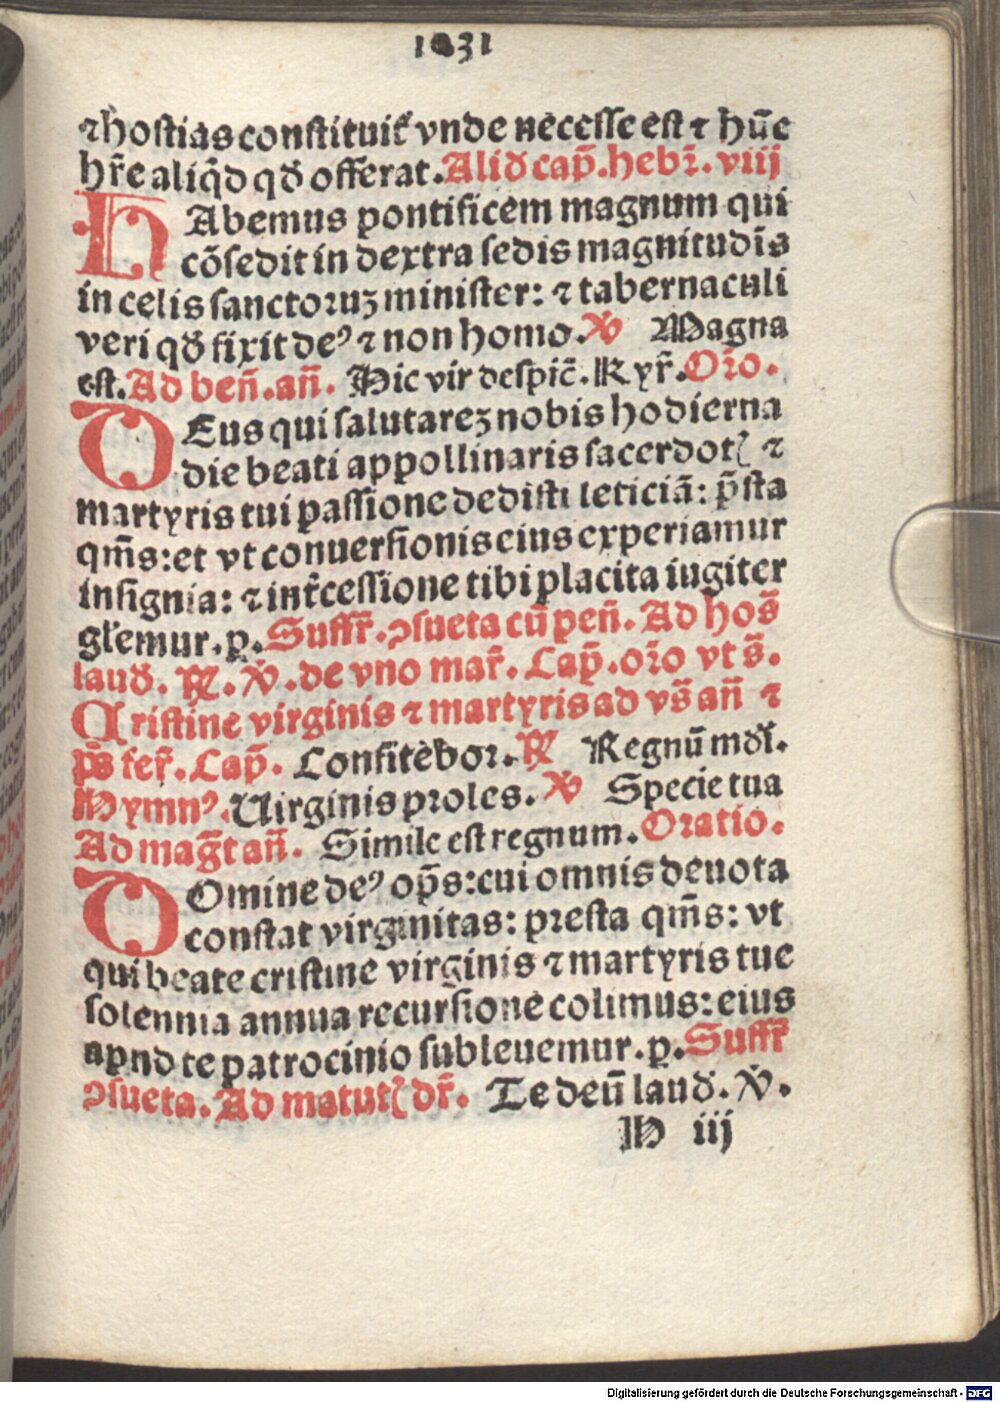 1031
⁊hostias constituit̉ vnde necesse est ⁊ hūc
hr̄e aliq̄d qd̄ offerat. Alid̄ cap̄. hebr̄. viij
HAbemus pontificem magnum qui
cōsedit in dextra sedis magnitudīs
in celis sanctoruꝫ minister: ⁊ tabernaculi
veri qd̄ fixit deꝰ ⁊ non homo. ℣ Magna
est. Ad ben̄. an̄. Hic vir despic̄. Kyr̄. Or̄o.
DEus qui salutareꝫ nobis hodierna
die beati appollinaris sacerdotꝭ ⁊
martyris tui passione dedisti leticiā: p̄sta
qm̄s: et vt conuersionis eius experiamur
insignia: ⁊ int̄cessione tibi placita iugiter
gl̄emur. p. Suffr̄. ꝯsueta cū pen̄. Ad hos̄
laud̄. ℟. ℣. de vno mar̄. Cap̄. or̄o vt s̄.
Cristine virginis ⁊ martyris ad vs̄ an̄ ⁊
ps̄ fer̄. Cap̄. Confitebor. ℟ Regnū mdī.
Hymnꝰ. Uirginis proles. ℣ Specie tua
Ad maḡt an̄. Simile est regnum. Oratio.
DOmine deꝰ op̄s: cui omnis deuota
constat virginitas: presta qm̄s: vt
qui beate cristine virginis ⁊ martyris tue
solennia annua recursione colimus: eius
apud te patrocinio subleuemur. p. Suffr̄
ꝯsueta. Ad matutꝭ dr̄. Te deū laud̄. ℣.
H iij
Digitalisierung gefördert durch die Deutsche Forschungsgemeinschaft - DFG